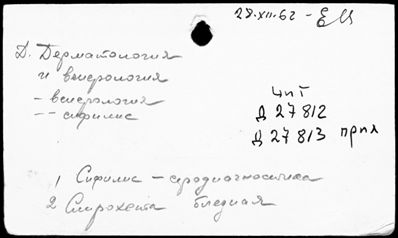 28.XII.62 - ЕМ
Д. Дерматология
и венерология
- венерология
-- сифилис
Чит
Д 27812
Д 27813 прил
1 Сифилис - серодиагностика
2 Спирохета бледная